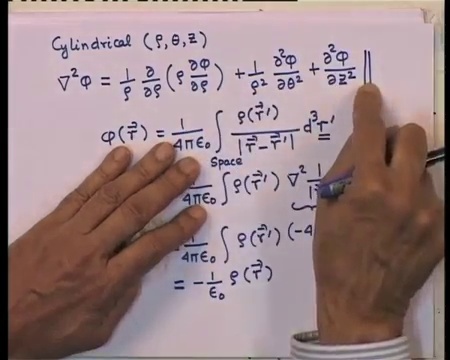 Cylindrical (ρ, θ, z)
∇²φ = 1/ρ ∂/∂ρ (ρ ∂φ/∂ρ) + 1/ρ² ∂²φ/∂θ² + ∂²φ/∂z²
φ(r⃗) = 1/4πε₀ ∫ ρ(r⃗')/|r⃗-r⃗'| d³r'
Space
1/4πε₀ ∫ρ(r⃗') ∇² 1/|r⃗
1/4πε₀ ∫ρ(r⃗') (-4
= -1/ε₀ ρ(r⃗)